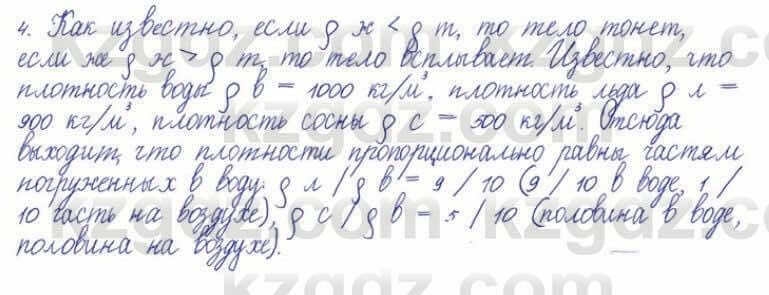 4. Как известно, если ρ ж < ρ т, то тело тонет,
если же ρ ж > ρ т, то тело всплывает. Известно, что
плотность воды ρ в = 1000 кг/м³, плотность льда ρ л =
900 кг/м³, плотность сосны ρ с = 500 кг/м³. Отсюда
выходит, что плотности пропорционально равны частям
погруженных в воду: ρ л / ρ в = 9 / 10 (9 / 10 в воде, 1 /
10 часть на воздухе), ρ с / ρ в = 5 / 10 (половина в воде,
половина на воздухе).
kzgdz.com